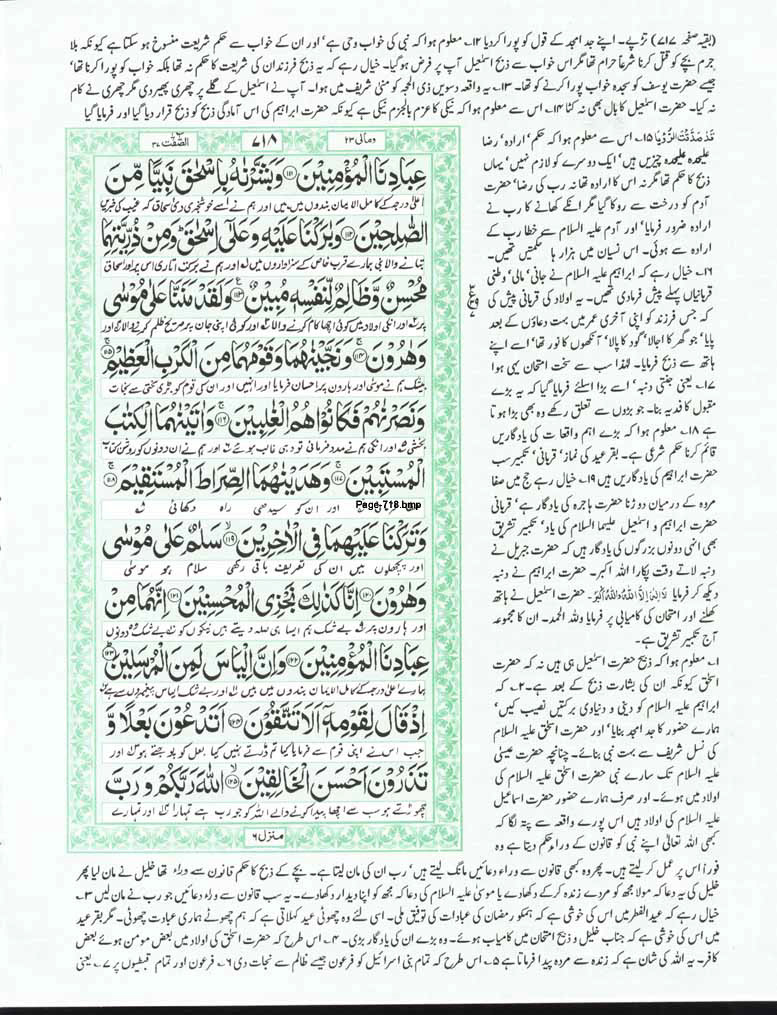 (بقیہ صفحہ ۷۱۷) تڑپے۔ اپنے جد امجد کے قول کو پورا کر دیا ۱۲۔ معلوم ہوا کہ نبی کی خواب وحی ہے' اور ان کے خواب سے حکم شریعت منسوخ ہو سکتا ہے کیونکہ بلا
جرم بچے کو قتل کرنا شرعاً حرام تھا مگر اس خواب سے ذبح اسمٰعیل آپ پر فرض ہو گیا۔ خیال رہے کہ یہ ذبح فرزند ان کی شریعت کا حکم نہ تھا بلکہ خواب کو پورا کرنا تھا'
جیسے حضرت یوسف کو سجدہ خواب پورا کرنے کو تھا۔ ۱۳۔ یہ واقعہ دسویں ذی الحجہ کو منیٰ شریف میں ہوا۔ آپ نے اسمٰعیل کے گلے پر چھری پھیر دی مگر چھری نے کام
نہ کیا۔ حضرت اسمٰعیل کا بال بھی نہ کٹا ۱۴۔ اس سے معلوم ہوا کہ نیکی کا عزم بالجزم نیکی ہے کیونکہ حضرت ابراہیم کی اس آمادگی ذبح کو ذبح قرار دیا گیا اور فرمایا گیا
وما لی ۲۳
۷۱۸
الصّٰفّٰت ۳۷
عِبَادِنَا الْمُؤْمِنِیْنَ ۝۱۱۱ وَبَشَّرْنٰهُ بِاِسْحٰقَ نَبِیًّا مِّنَ
اعلیٰ درجہ کے کامل الایمان بندوں میں ہیں اور ہم نے اسے خوشخبری دی اسحاق کہ غیب کی خبریں
الصّٰلِحِیْنَ ۝۱۱۲ وَبٰرَكْنَا عَلَیْهِ وَعَلٰۤی اِسْحٰقَ ؕ وَمِنْ ذُرِّیَّتِهِمَا
بتانے والا نبی ہمارے قرب خاص کے سزاواروں میں اور ہم نے برکت اتاری اس پر اور اسحاق
مُحْسِنٌ وَّظَالِمٌ لِّنَفْسِهٖ مُبِیْنٌ ۝۱۱۳ وَلَقَدْ مَنَنَّا عَلٰی مُوْسٰی
پر اور انکی اولاد میں کوئی اچھا کام کرنے والا اور کوئی اپنی جان پر صریح ظلم کرنے والا اور
وَهٰرُوْنَ ۝۱۱۴ وَنَجَّیْنٰهُمَا وَقَوْمَهُمَا مِنَ الْكَرْبِ الْعَظِیْمِ ۝۱۱۵
بیشک ہم نے موسٰی اور ہارون پر احسان فرمایا اور انہیں اور ان کی قوم کو بڑی سختی سے نجات
وَنَصَرْنٰهُمْ فَكَانُوْا هُمُ الْغٰلِبِیْنَ ۝۱۱۶ وَاٰتَیْنٰهُمَا الْكِتٰبَ
بخشی اور انکی ہم نے مدد فرمائی تو وہی غالب ہوئے اور ہم نے ان دونوں کو روشن کتاب
الْمُسْتَبِیْنَ ۝۱۱۷ وَهَدَیْنٰهُمَا الصِّرَاطَ الْمُسْتَقِیْمَ ۝۱۱۸
Page-718.bmp
اور ان کو سیدھی راہ دکھائی
وَتَرَكْنَا عَلَیْهِمَا فِی الْاٰخِرِیْنَ ۝۱۱۹ سَلٰمٌ عَلٰی مُوْسٰی
اور پچھلوں میں ان کی تعریف باقی رکھی سلام ہو موسٰی
وَهٰرُوْنَ ۝۱۲۰ اِنَّا كَذٰلِكَ نَجْزِی الْمُحْسِنِیْنَ ۝۱۲۱ اِنَّهُمَا مِنْ
اور ہارون پر بے شک ہم ایسا ہی صلہ دیتے ہیں نیکوں کو بے شک وہ دونوں
عِبَادِنَا الْمُؤْمِنِیْنَ ۝۱۲۲ وَاِنَّ اِلْیَاسَ لَمِنَ الْمُرْسَلِیْنَ ۝۱۲۳
ہمارے اعلیٰ درجہ کے کامل الایمان بندوں میں ہیں اور بے شک الیاس پیغمبروں سے ہے
اِذْ قَالَ لِقَوْمِهٖۤ اَلَا تَتَّقُوْنَ ۝۱۲۴ اَتَدْعُوْنَ بَعْلًا وَّ
جب اس نے اپنی قوم سے فرمایا کیا تم ڈرتے نہیں کیا بعل کو پوجتے ہو اور
تَذَرُوْنَ اَحْسَنَ الْخَالِقِیْنَ ۝۱۲۵ اللّٰهَ رَبَّكُمْ وَرَبَّ
چھوڑتے ہو سب سے اچھا پیدا کرنے والے اللہ کو جو رب ہے تمہارا اور تمہارے
منزل ۶
قَدْ صَدَّقْتَ الرُّؤْیَا ۱۵۔ اس سے معلوم ہوا کہ حکم' ارادہ' رضا
علیحدہ علیحدہ چیزیں ہیں' ایک دوسرے کو لازم نہیں' یہاں
ذبح کا حکم تھا مگر نہ اس کا ارادہ تھا نہ رب کی رضا' حضرت
آدم کو درخت سے روکا گیا مگر انکے کھانے کا رب نے
ارادہ ضرور فرمایا' اور آدم علیہ السلام سے خطا رب کے
ارادہ سے ہوئی۔ اس نسیان میں ہزار ہا حکمتیں تھیں۔
۱۶۔ خیال رہے کہ ابراہیم علیہ السلام نے جانی' مالی' وطنی
قربانیاں پہلے پیش فرما دی تھیں۔ یہ اولاد کی قربانی پیش کی
کہ جس فرزند کو اپنی آخری عمر میں بہت دعاؤں کے بعد
پایا' جو گھر کا اجالا' گود کا پالا' آنکھوں کا نور تھا' اسے اپنے
ہاتھ سے ذبح فرمایا۔ لہٰذا سب سے سخت امتحان یہی ہوا
۱۷۔ یعنی جنتی دنبہ' اسے بڑا اسلئے فرمایا گیا کہ یہ بڑے
مقبول کا فدیہ بنا۔ جو بڑوں سے تعلق رکھے وہ بھی بڑا ہوتا
ہے ۱۸۔ معلوم ہوا کہ بڑے اہم واقعات کی یادگاریں
قائم کرنا حکم شرعی ہے۔ بقر عید کی نماز' قربانی' تکبیر سب
حضرت ابراہیم کی یادگاریں ہیں ۱۹۔ خیال رہے حج میں صفا
مروہ کے درمیان دوڑنا حضرت ہاجرہ کی یادگار ہے' قربانی
حضرت ابراہیم و اسمٰعیل علیہما السلام کی یاد' تکبیر تشریق
بھی انہی دونوں بزرگوں کی یادگار ہیں کہ حضرت جبریل نے
دنبہ لاتے وقت پکارا اللہ اکبر۔ حضرت ابراہیم نے دنبہ
دیکھ کر فرمایا لَاۤ اِلٰهَ اِلَّا اللّٰهُ وَاللّٰهُ اَكْبَرُ۔ حضرت اسمٰعیل نے ہاتھ
کھلنے اور امتحان کی کامیابی پر فرمایا وللہ الحمد۔ ان کا مجموعہ
آج تکبیر تشریق ہے۔
۱۔ معلوم ہوا کہ ذبیح حضرت اسمٰعیل ہی ہیں نہ کہ حضرت
اسحٰق کیونکہ ان کی بشارت ذبح کے بعد ہے۔ ۲۔ کہ
ابراہیم علیہ السلام کو دینی و دنیاوی برکتیں نصیب کیں'
ہمارے حضور کا جد امجد بنایا' اور حضرت اسحٰق علیہ السلام
کی نسل شریف سے بہت نبی بنائے۔ چنانچہ حضرت عیسیٰ
علیہ السلام تک سارے نبی حضرت اسحٰق علیہ السلام کی
اولاد میں ہوئے۔ اور صرف ہمارے حضور حضرت اسماعیل
علیہ السلام کی اولاد ہیں اس پورے واقعہ سے پتہ لگا کہ
کبھی اللہ تعالیٰ اپنے نبی کو قانون کے وراء حکم دیتا ہے وہ
فوراً اس پر عمل کر لیتے ہیں۔ پھر وہ بھی قانون سے وراء دعائیں مانگ لیتے ہیں' رب ان کی مان لیتا ہے۔ بچے کے ذبح کا حکم قانون سے وراء تھا خلیل نے مان لیا پھر
خلیل کی یہ دعا کہ مولا مجھ کو مردے زندہ کر کے دکھا دے یا موسیٰ علیہ السلام کی دعا کہ مجھ کو اپنا دیدار دکھا دے۔ یہ سب قانون سے وراء دعائیں جو رب نے مان لیں ۳۔
خیال رہے کہ عید الفطر میں اس کی خوشی ہے کہ ہمکو رمضان کی عبادات کی توفیق ملی۔ اسی لئے وہ چھوٹی عید کہلاتی ہے کہ ہم چھوٹے ہماری عبادت چھوٹی۔ مگر بقر عید
میں اس کی خوشی ہے کہ جناب خلیل و ذبیح امتحان میں کامیاب ہوئے۔ وہ بڑے ان کی یادگار بڑی۔ ۴۔ اس طرح کہ حضرت اسحٰق کی اولاد میں بعض مومن ہوئے بعض
کافر۔ یہ اللہ کی شان ہے کہ زندہ سے مردہ پیدا فرماتا ہے ۵۔ اس طرح کہ تمام بنی اسرائیل کو فرعون جیسے ظالم سے نجات دی ۶۔ فرعون اور تمام قبطیوں پر ۷۔ یعنی